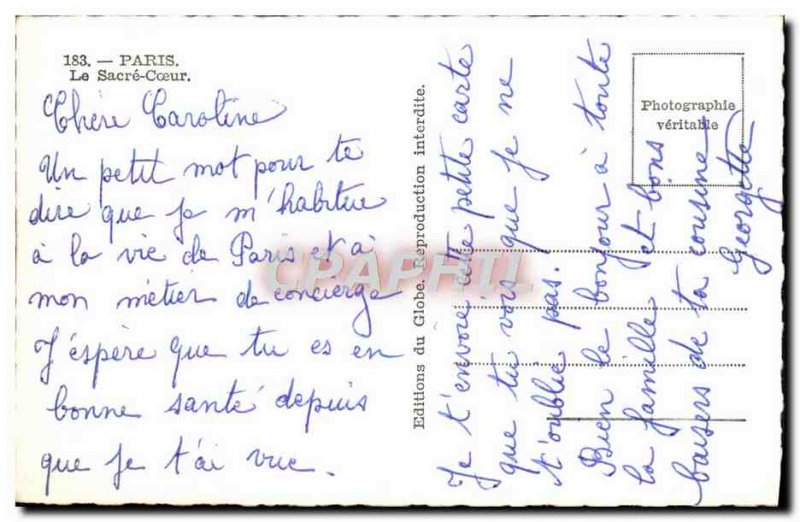 183. — PARIS.
Le Sacré-Cœur.
Chère Caroline
Un petit mot pour te
dire que je m'habitue
à la vie de Paris et à
mon métier de concierge
J'éspère que tu es en
bonne santé depuis
que je t'ai vue.
Editions du Globe. Réproduction interdite.
Je t'envoie cette petite carte
que tu vois que je ne
t'oublie pas.
Bien le bonjour à toute
la famille et bons
baisers de ta cousine
Georgette
Photographie
véritable
CPAPHIL